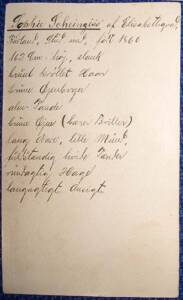 Sophie Scheingliss af Elisabethgrad,
Rusland, Stud. med., født 1860
162 Ctm. høj, slank
brunt krøllet Haar
brune Øjenbryn
alm. Pande
brune Øjne (bærer Briller)
lang Næse, lille Mund,
fuldstændig hvide Tænder
Hage
langagtigt Ansigt